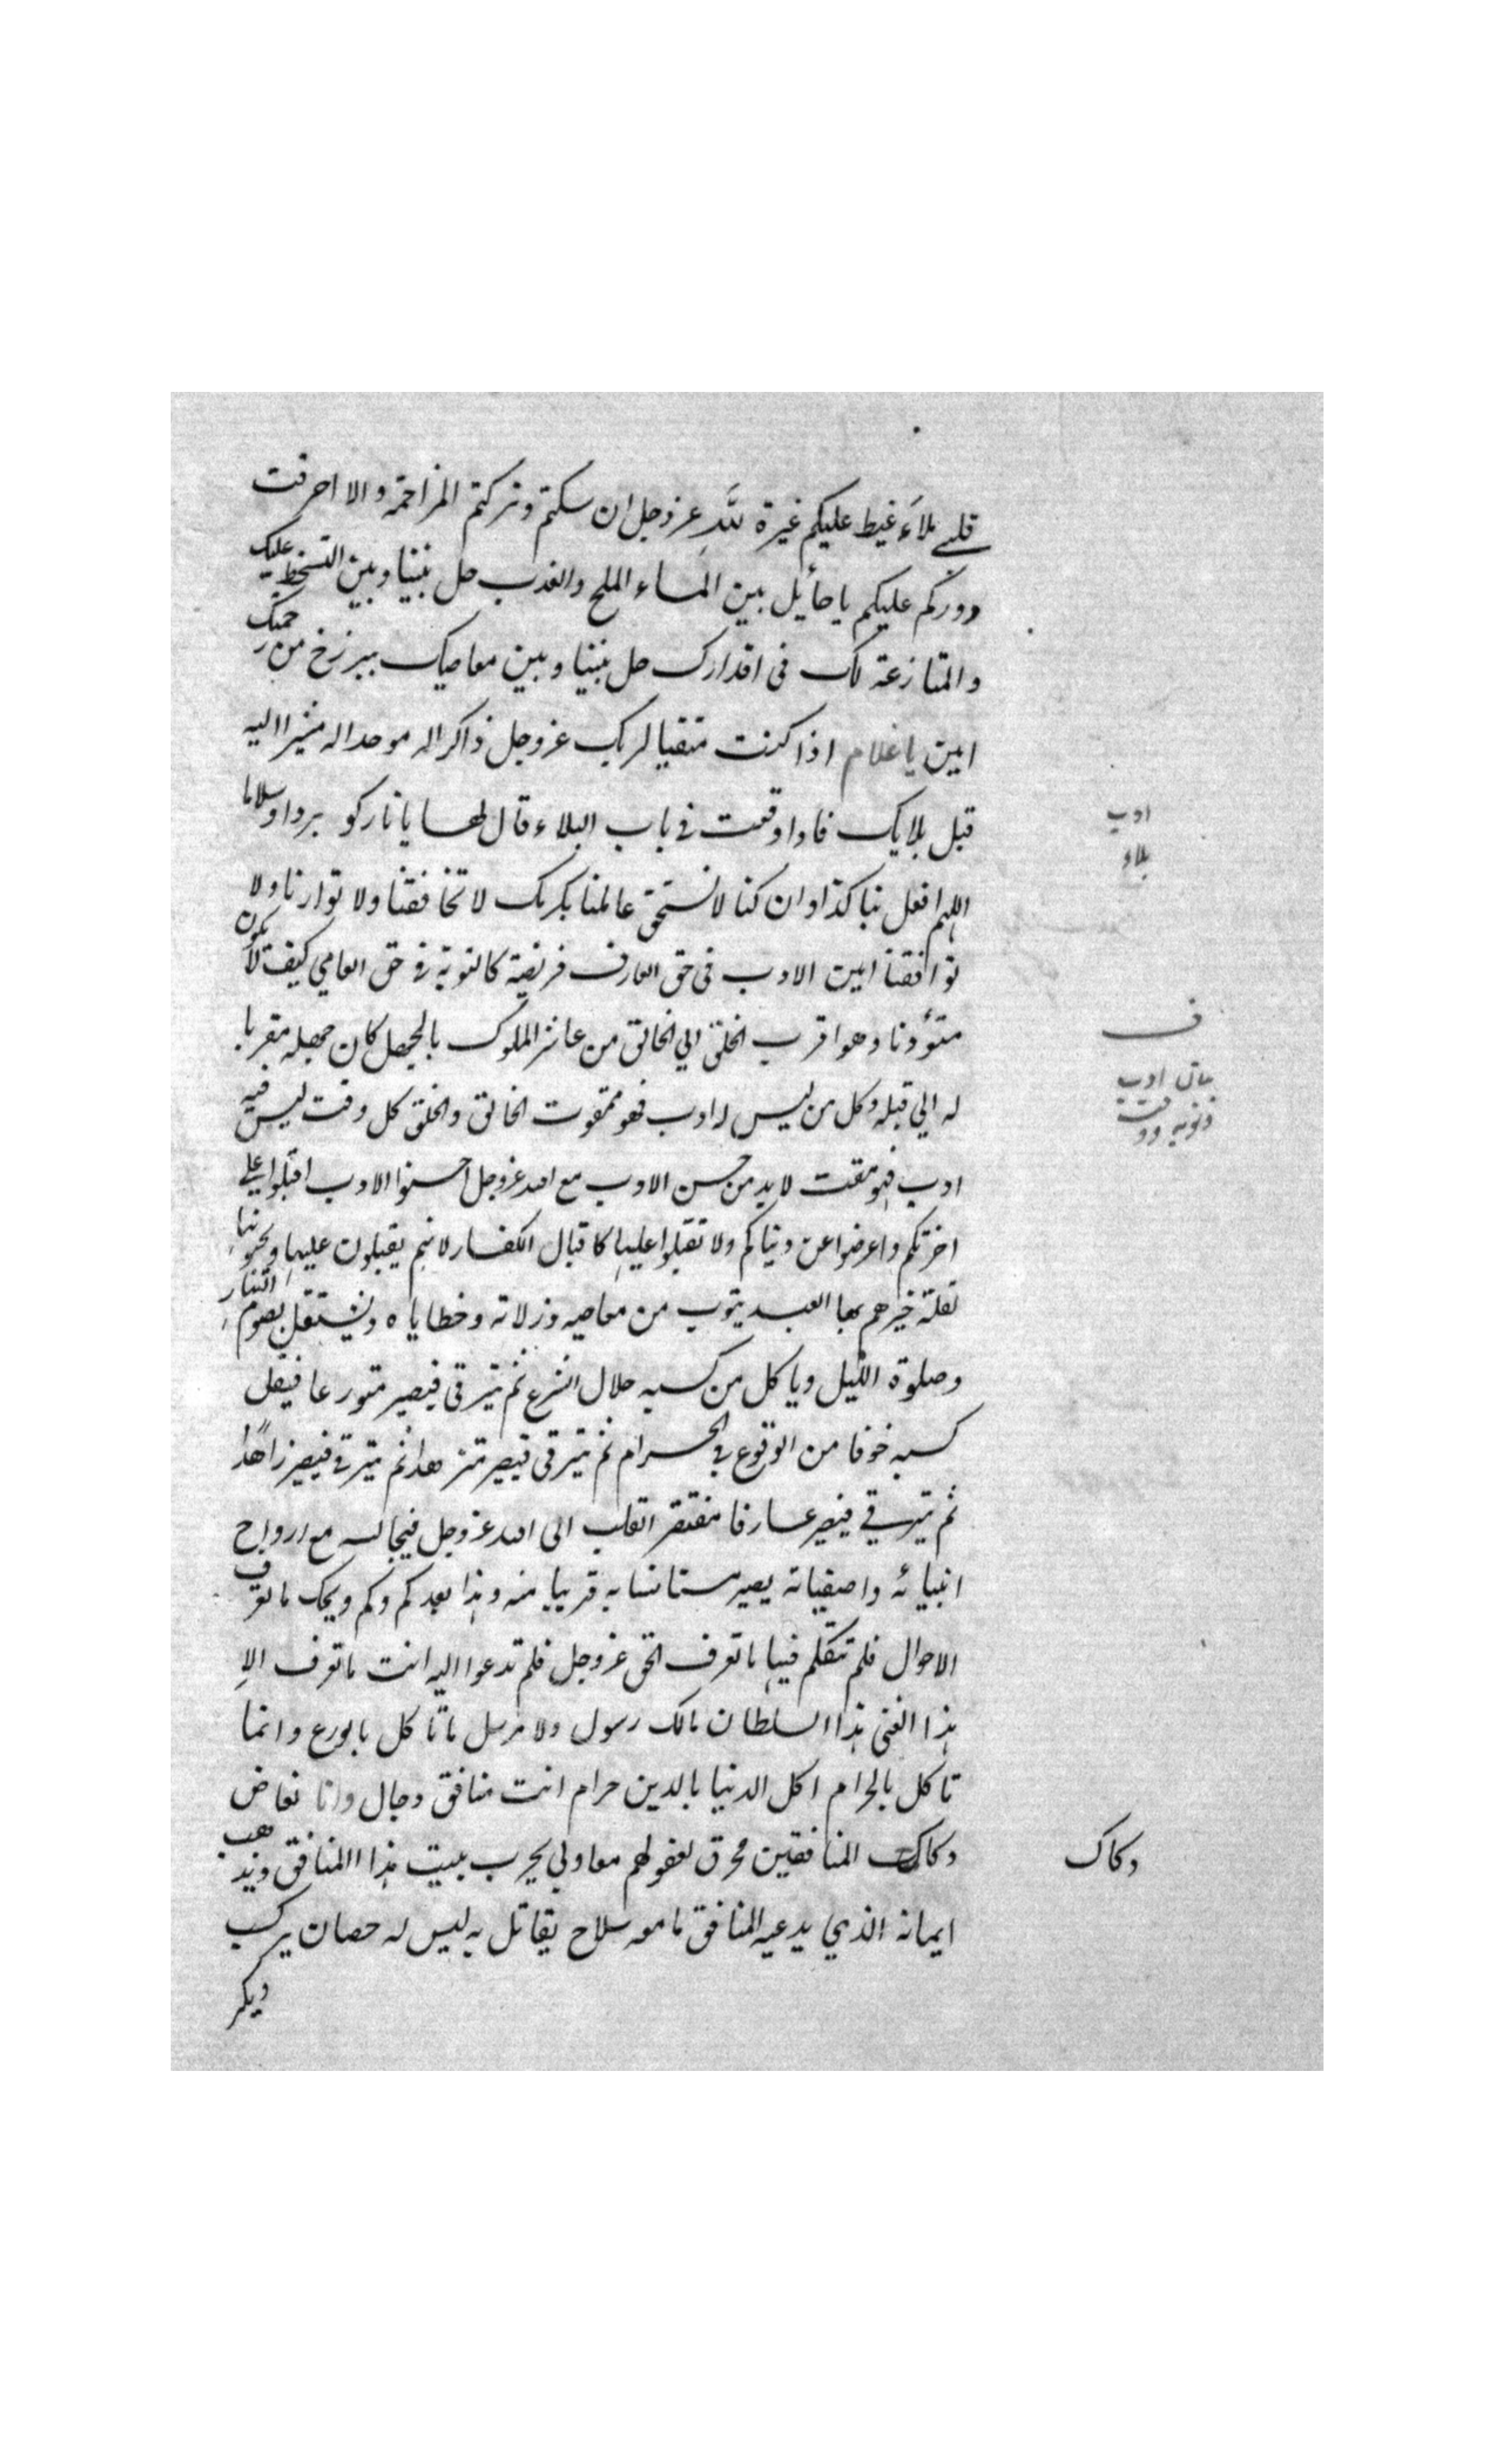 قلبي ملآء غيظ عليكم غيرة للّٰه عز وجل ان سكتم وتركتم المزاحمة والا احرقت
دوركم عليكم يا حائل بين الماء الملح والعذب حل بيننا وبين التسخط عليك
والمنازعة لك في اقدارك حل بيننا وبين معاصيك ببرزخ من رحمتك
امين يا غلام اذا كنت متقيا لربك عز وجل ذاكرا له موحدا له مشيرا اليه
قبل بلايك فاذا وقعت في باب البلاء قال لها يا نار كو بردا وسلاما
اللهم افعل بنا كذا وان كنا لا نستحق عاملنا بكرمك لا تحاققنا ولا توازنا ولا
توافقنا امين الادب في حق العارف فريضة كالتوبة في حق العاصي كيف لا يكون
متؤدبا وهو اقرب الخلق الي الخالق من عاشر الملوك بالجهل كان جهله مقربا
له الي قبله وكل من ليس له ادب فهو ممقوت الخالق والخلق كل وقت ليس فيه
ادب فهو مقت لا بد من حسن الادب مع الله عز وجل احسنوا الادب اقبلوا علي
اخرتكم واعرضوا عن دنياكم ولا تقبلوا عليها كاقبال الكفار لانهم يقبلون عليها ويحبونها
لقلة خبرهم بها العبد يتوب من معاصيه وزلاته وخطاياه ويشتغل بصوم النهار
وصلوة الليل وياكل من كسبه حلال الشرع ثم يترقى فيصير متورعا فيقل
كسبه خوفا من الوقوع في الحرام ثم يترقى فيصير متزهدا ثم يترقي فيصير زاهدًا
ثم يترقي فيصير عارفا مفتقر القلب الى الله عز وجل فيجالسه مع ارواح
انبيائه واصفيائه يصير مستانسا به قريبا منه وهذا بعد كم وكم ويحك ما تعرف
الاحوال فلم تتكلم فيها ما تعرف الحق عز وجل فلم تدعوا اليه انت ما تعرف الا
هذا الغني هذا السلطان مالك رسول ولا مرسل ما تاكل بالورع وانما
تاكل بالحرام اكل الدنيا بالدين حرام انت منافق دجال وانا نعاض
دكاك المنافقين محرق لعقولهم معاولي يخرب ببيت هذا المنافق ويذهب
ايمانه الذي يدعيه المنافق ما معه سلاح يقاتل به ليس له حصان يركب
ويكر
ادب
بلاء
ف
بيان ادب
وتوبه
دكاك